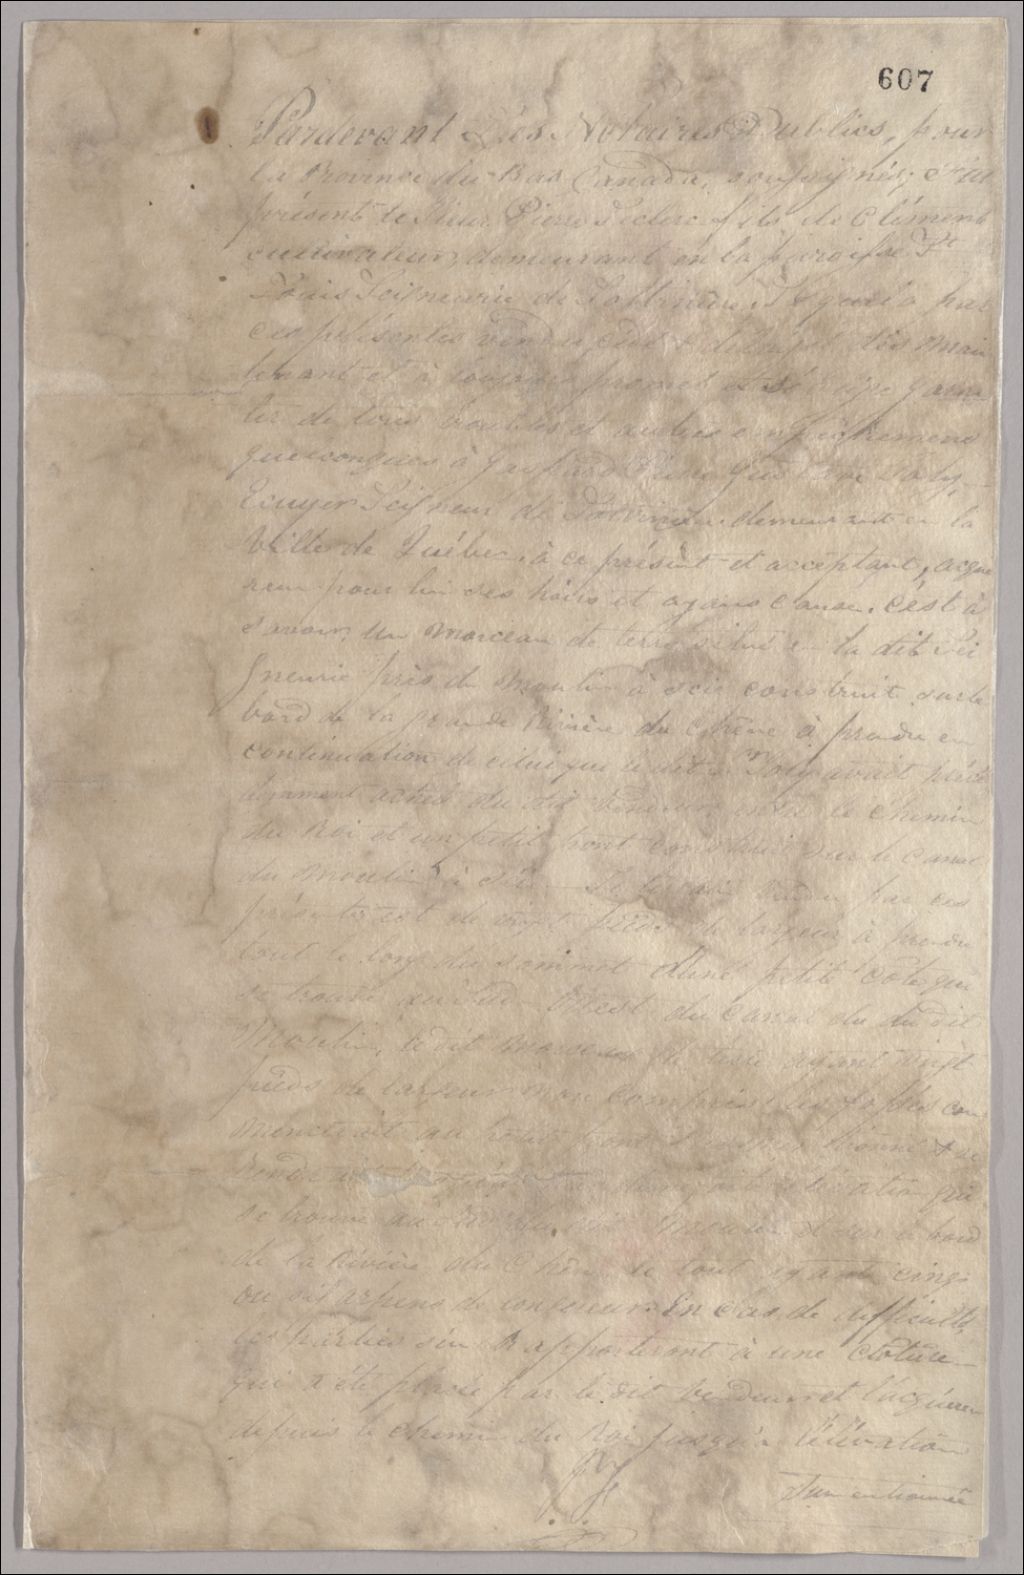 607
Pardevant Les Notaires Publics, pour
la Province du Bas Canada, soussignés; Fut
présent le Sieur Pierre Leclerc fils de Clément
cultivateur, demeurant en la paroisse St
Louis Seigneurie de Lotbinière. Lequel a par
ces présentes vendu cédé & délaissé dès main
tenant et à toujours promet et s'oblige garan
tir de tous troubles et autres empêchemens
quelconques à Gaspard Pierre Gustave Joly,
Ecuyer Seigneur de Lotbinière demeurant en la
Ville de Québec, à ce présent et acceptant, acqué
reur pour lui ses hoirs et ayans cause. C'est à
savoir, Un morceau de terre situé en la dite Sei
gneurie près du Moulin à scie construit sur le
bord de la grande Rivière du Chêne à prendre en
continuation de celui que le dit Mr Joly avait précé
demment acheté du dit Vendeur entre le Chemin
du Roi et un petit pont construit sur le Canal
du Moulin à scie. Le terrain vendu par ces
présentes est de vingt pieds de largeur à prendre
tout le long du sommet d'une petite côte qui
se trouve au Sud-Ouest du Canal du dit
Moulin, le dit morceau de terre ayant vingt
pieds de largeur non compris les fossés com
mencerait au petit pont mentionné & se
élévation qui
se trouve au bord
de la Rivière du Chêne le tout ayant cinq
ou six arpens de longueur. En cas de difficulté
les parties s'en rapporteront à une clôture
qui a été placée par le dit Vendeur et l'acquéreur
depuis le chemin du Roi jusqu'à l'élévation
susmentionnée